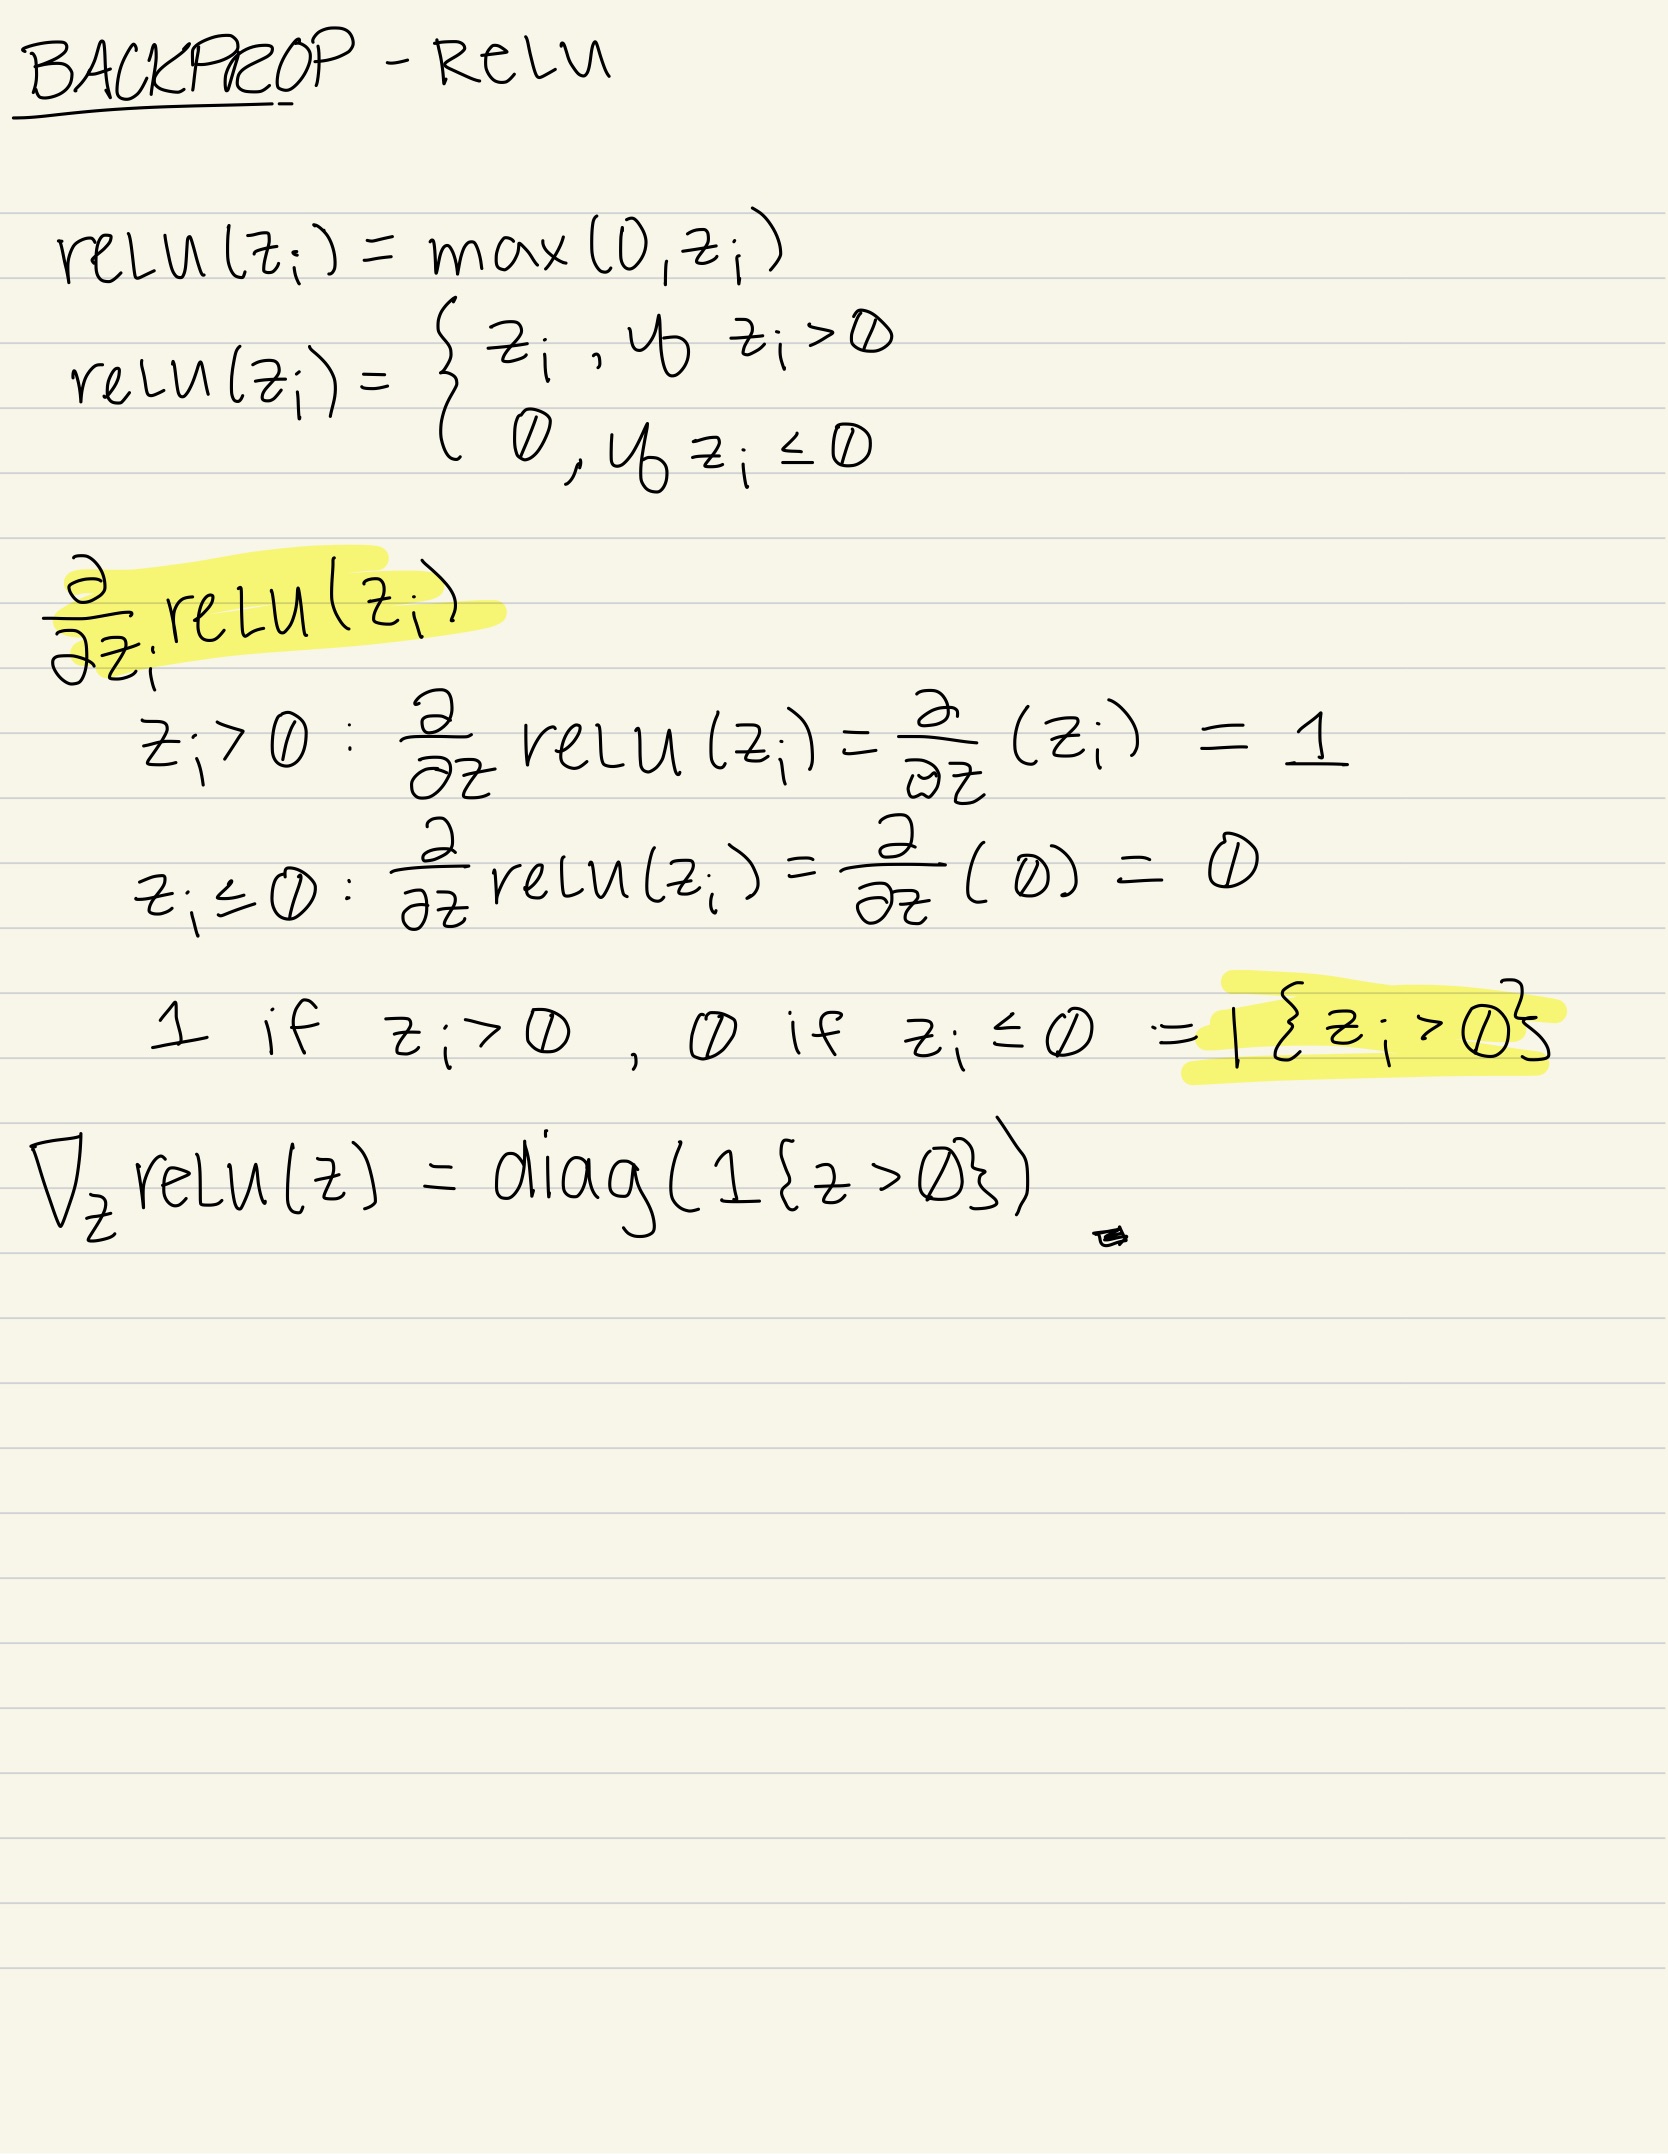 BACKPROP - ReLU
reLU(zᵢ) = max(0, zᵢ)
reLU(zᵢ) = { zᵢ, if zᵢ > 0
0, if zᵢ ≤ 0
∂/∂zᵢ reLU(zᵢ)
zᵢ > 0 : ∂/∂z reLU(zᵢ) = ∂/∂z (zᵢ) = 1
zᵢ ≤ 0 : ∂/∂z reLU(zᵢ) = ∂/∂z (0) = 0
1 if zᵢ > 0 , 0 if zᵢ ≤ 0 := 1{zᵢ > 0}
∇z reLU(z) = diag(1{z > 0})